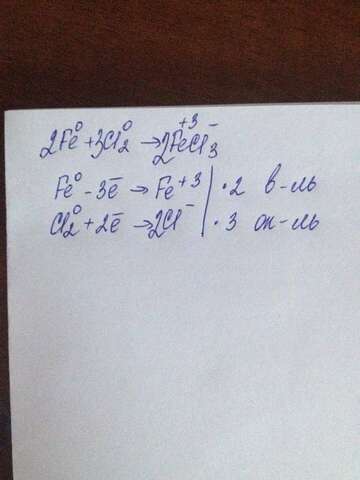 2Fe⁰ + 3Cl₂⁰ → 2Fe⁺³Cl₃⁻
Fe⁰ - 3ē → Fe⁺³ | · 2 в-ль
Cl₂⁰ + 2ē → 2Cl⁻ | · 3 ок-ль